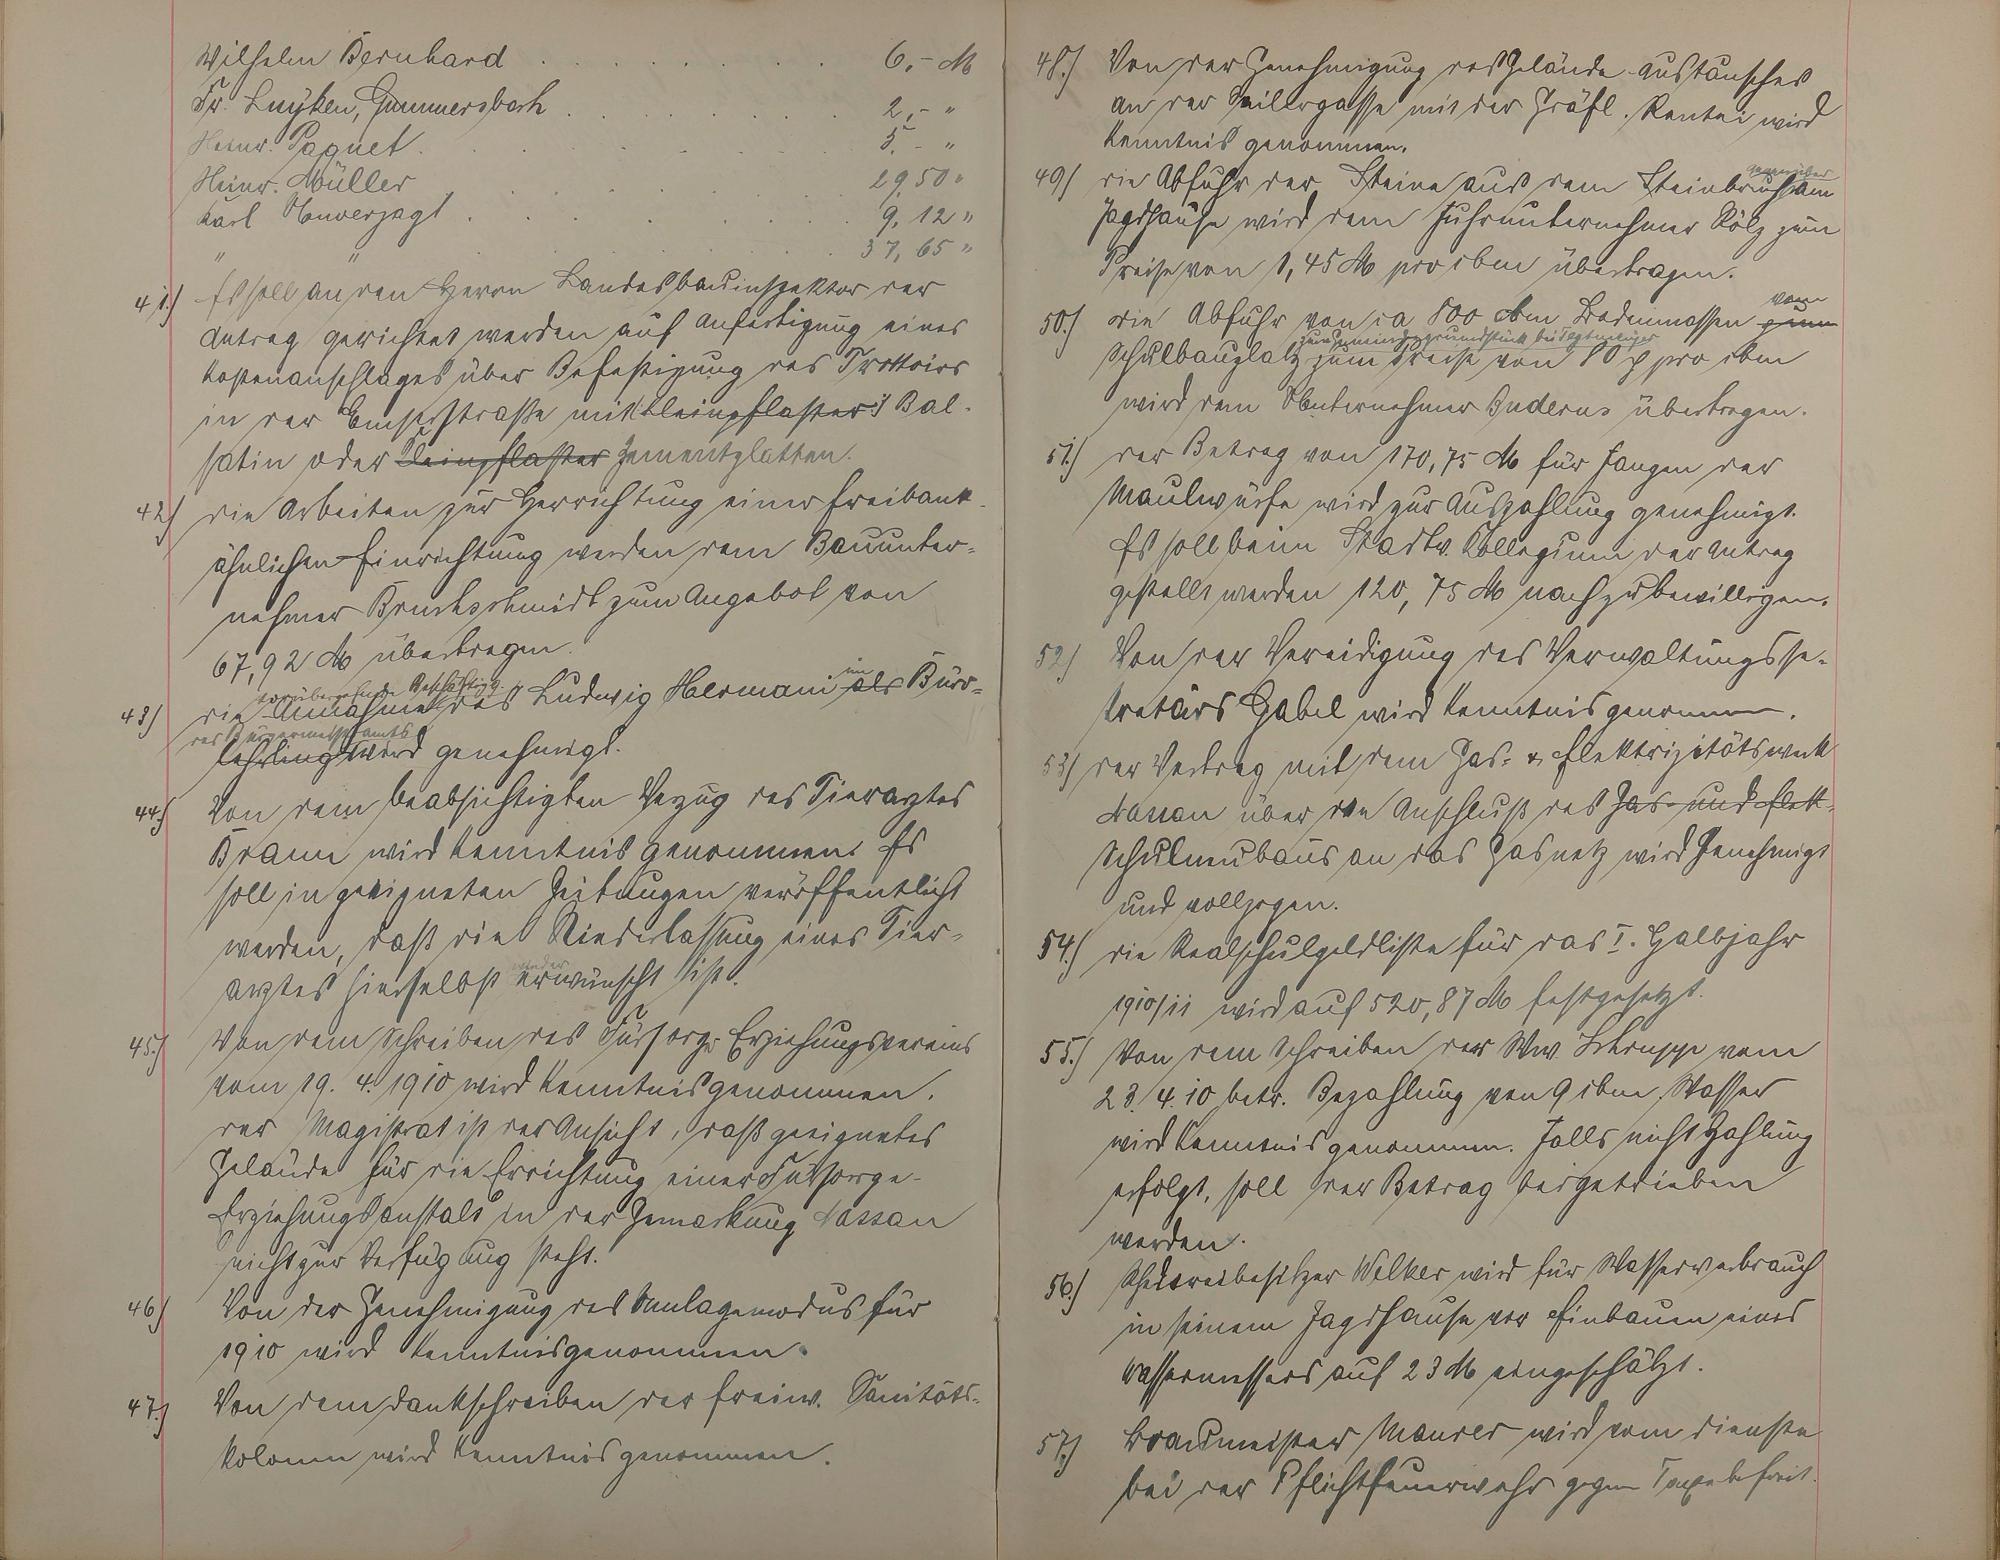 Wilhelm Bernhard . . . . . . . . 6,- M
Fr. Luyken, Gummersbach . . . . . . . 2,- "
Heinr. Paquet . . . . . . . 5.- "
Heinr. Müller . . . . . . . 29,50 "
Karl Unverzagt . . . . . . . 9,12 "
" " . . . . 37,65 "
41.) Es soll an den Herrn Landesbauinspektor der
Antrag gerichtet werden auf Anfertigung eines
Kostenanschlages über Befestigung des Trottoirs
in der Emserstraße mit Kleinpflaster, Bal-
satin oder Kleinpflaster Zementplatten.
42) die Arbeiten zur Herrichtung einer freibank-
ähnlichen Einrichtung werden dem Bauunter-
nehmer Bruchschmidt zum Angebot von
67,92 M übertragen.
vorübergehende Beschäftig.
43) die Annahme des Ludwig Hermani im als Büro-
des Bürgermeisteramts
lehrling wird genehmigt.
44.) Von dem beabsichtigten Verzug des Tierarztes
Braun wird Kenntnis genommen. Es
soll in geeigneten Zeitungen veröffentlicht
werden, daß die Niederlassung eines Tier-
wieder
arztes hierselbst erwünscht ist.
45.) Von dem Schreiben des Fürsorge Erziehungsvereins
vom 19. 4. 1910 wird Kenntnis genommen.
der Magistrat ist der Ansicht, daß geeignetes
Gelände für die Errichtung einer Fürsorge-
Erziehungsanstalt in der Gemarkung Nassau
nicht zur Verfügung steht.
46) Von der Genehmigung des Umlagemodus für
1910 wird Kenntnis genommen.
47.) Von dem Dankschreiben der freiw. Sanitäts-
kolonne wird Kenntnis genommen.
48.) Von der Genehmigung des Gelände-Austausches
an der Seilergasse mit der Gräfl. Rentei wird
Kenntnis genommen.
gegenüber
49) die Abfuhr der Steine aus dem Steinbruch am
Jagdhause wird dem Fuhrunternehmer Kölz zum
Preise von 1,45 M pro cbm übertragen.
vom
50.) die Abfuhr von ca 800 cbm Bodenmassen zum
zum grundstück bei
Schulbauplatz zum Preise von 80 ₰ pro cbm
wird dem Unternehmer Buderus übertragen.
51.) der Betrag von 170,75 M für Fangen der
Maulwürfe wird zur Auszahlung genehmigt.
Es soll beim Stadtv. Kollegium der Antrag
gestellt werden 120,75 M nachzubewilligen.
52) Von der Vereidigung des Verwaltungsse-
kretärs Gabel wird Kenntnis genommen.
53) der Vertrag mit dem Gas- & Elektrizitätswerk
Nassau über den Anschluß des Gas- und Elek-
Schulneubaus an das Gasnetz wird genehmigt
und vollzogen.
54.) die Realschulgeldliste für das I. Halbjahr
1910/11 wird auf 520,87 M festgesetzt.
55.) Von dem Schreiben der Ww. Schrupp vom
23. 4. 10 betr. Bezahlung von 9 cbm Wasser
wird Kenntnis genommen. Falls nicht Zahlung
erfolgt, soll der Betrag beigetrieben
werden.
56.) Welker wird für Wasserverbrauch
in seinem Jagdhause vor Einbauen eines
Wassermessers auf 23 M eingeschätzt.
57.) Braumeister Maurer wird vom Dienste
bei der Pflichtfeuerwehr gegen Taxe befreit.